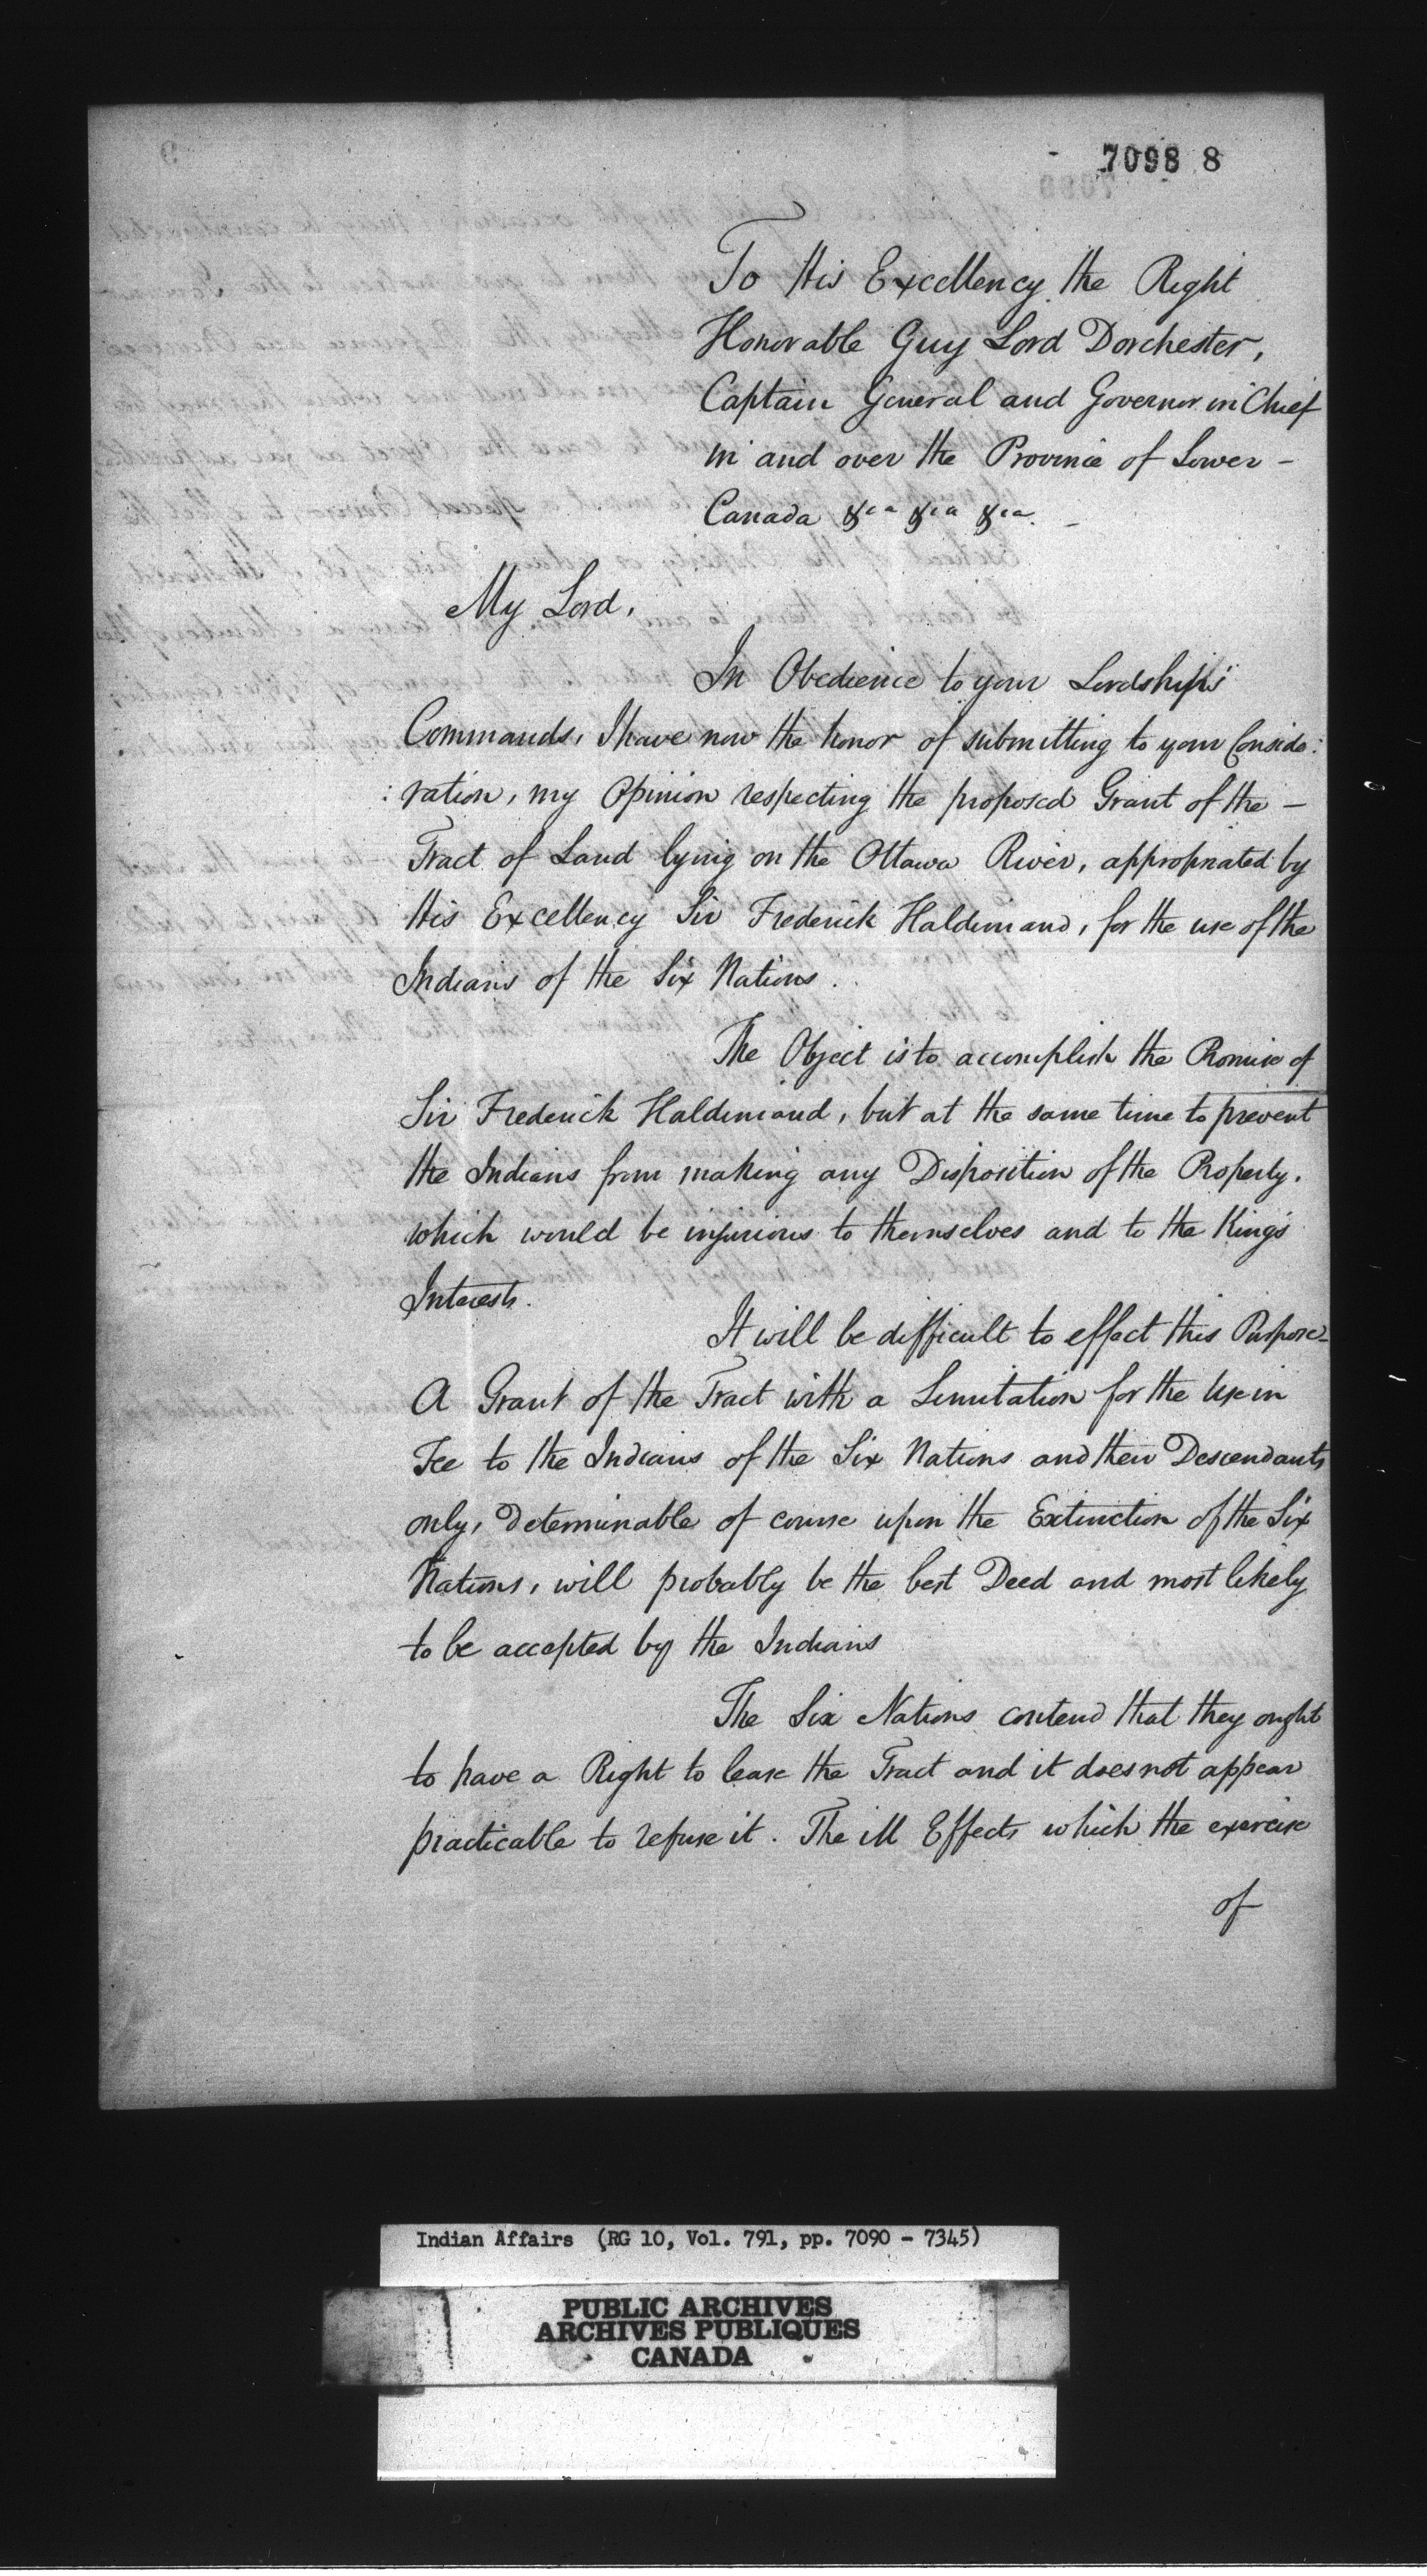 7098 8
To His Excellency the Right
Honorable Guy Lord Dorchester,
Captain General and Governor in Chief
in and over the Province of Lower -
Canada &ca &ca &ca. -
My Lord,
In Obedience to your Lordships
Commands, I have now the honor of submitting to your Conside:
:ration, my Opinion respecting the proposed Grant of the -
Tract of Land lying on the Ottawa River, appropriated by
His Excellency Sir Frederick Haldimand, for the use of the
Indians of the Six Nations.
The Object is to accomplish the Promise of
Sir Frederick Haldimand, but at the same time to prevent
the Indians from making any Disposition of the Property,
which would be injurious to themselves and to the King's
Interests.
It will be difficult to effect this Purpose -
A Grant of the Tract with a Limitation for the Use in
Fee to the Indians of the Six Nations and their Descendants
only, Determinable of course upon the Extinction of the Six
Nations, will probably be the best Deed and most likely
to be accepted by the Indians
The Six Nations contend that they ought
to have a Right to lease the Tract and it does not appear
practicable to refuse it. The ill Effects which the exercise
of
Indian Affairs (RG 10, Vol. 791, pp. 7090 - 7345)
PUBLIC ARCHIVES
ARCHIVES PUBLIQUES
CANADA